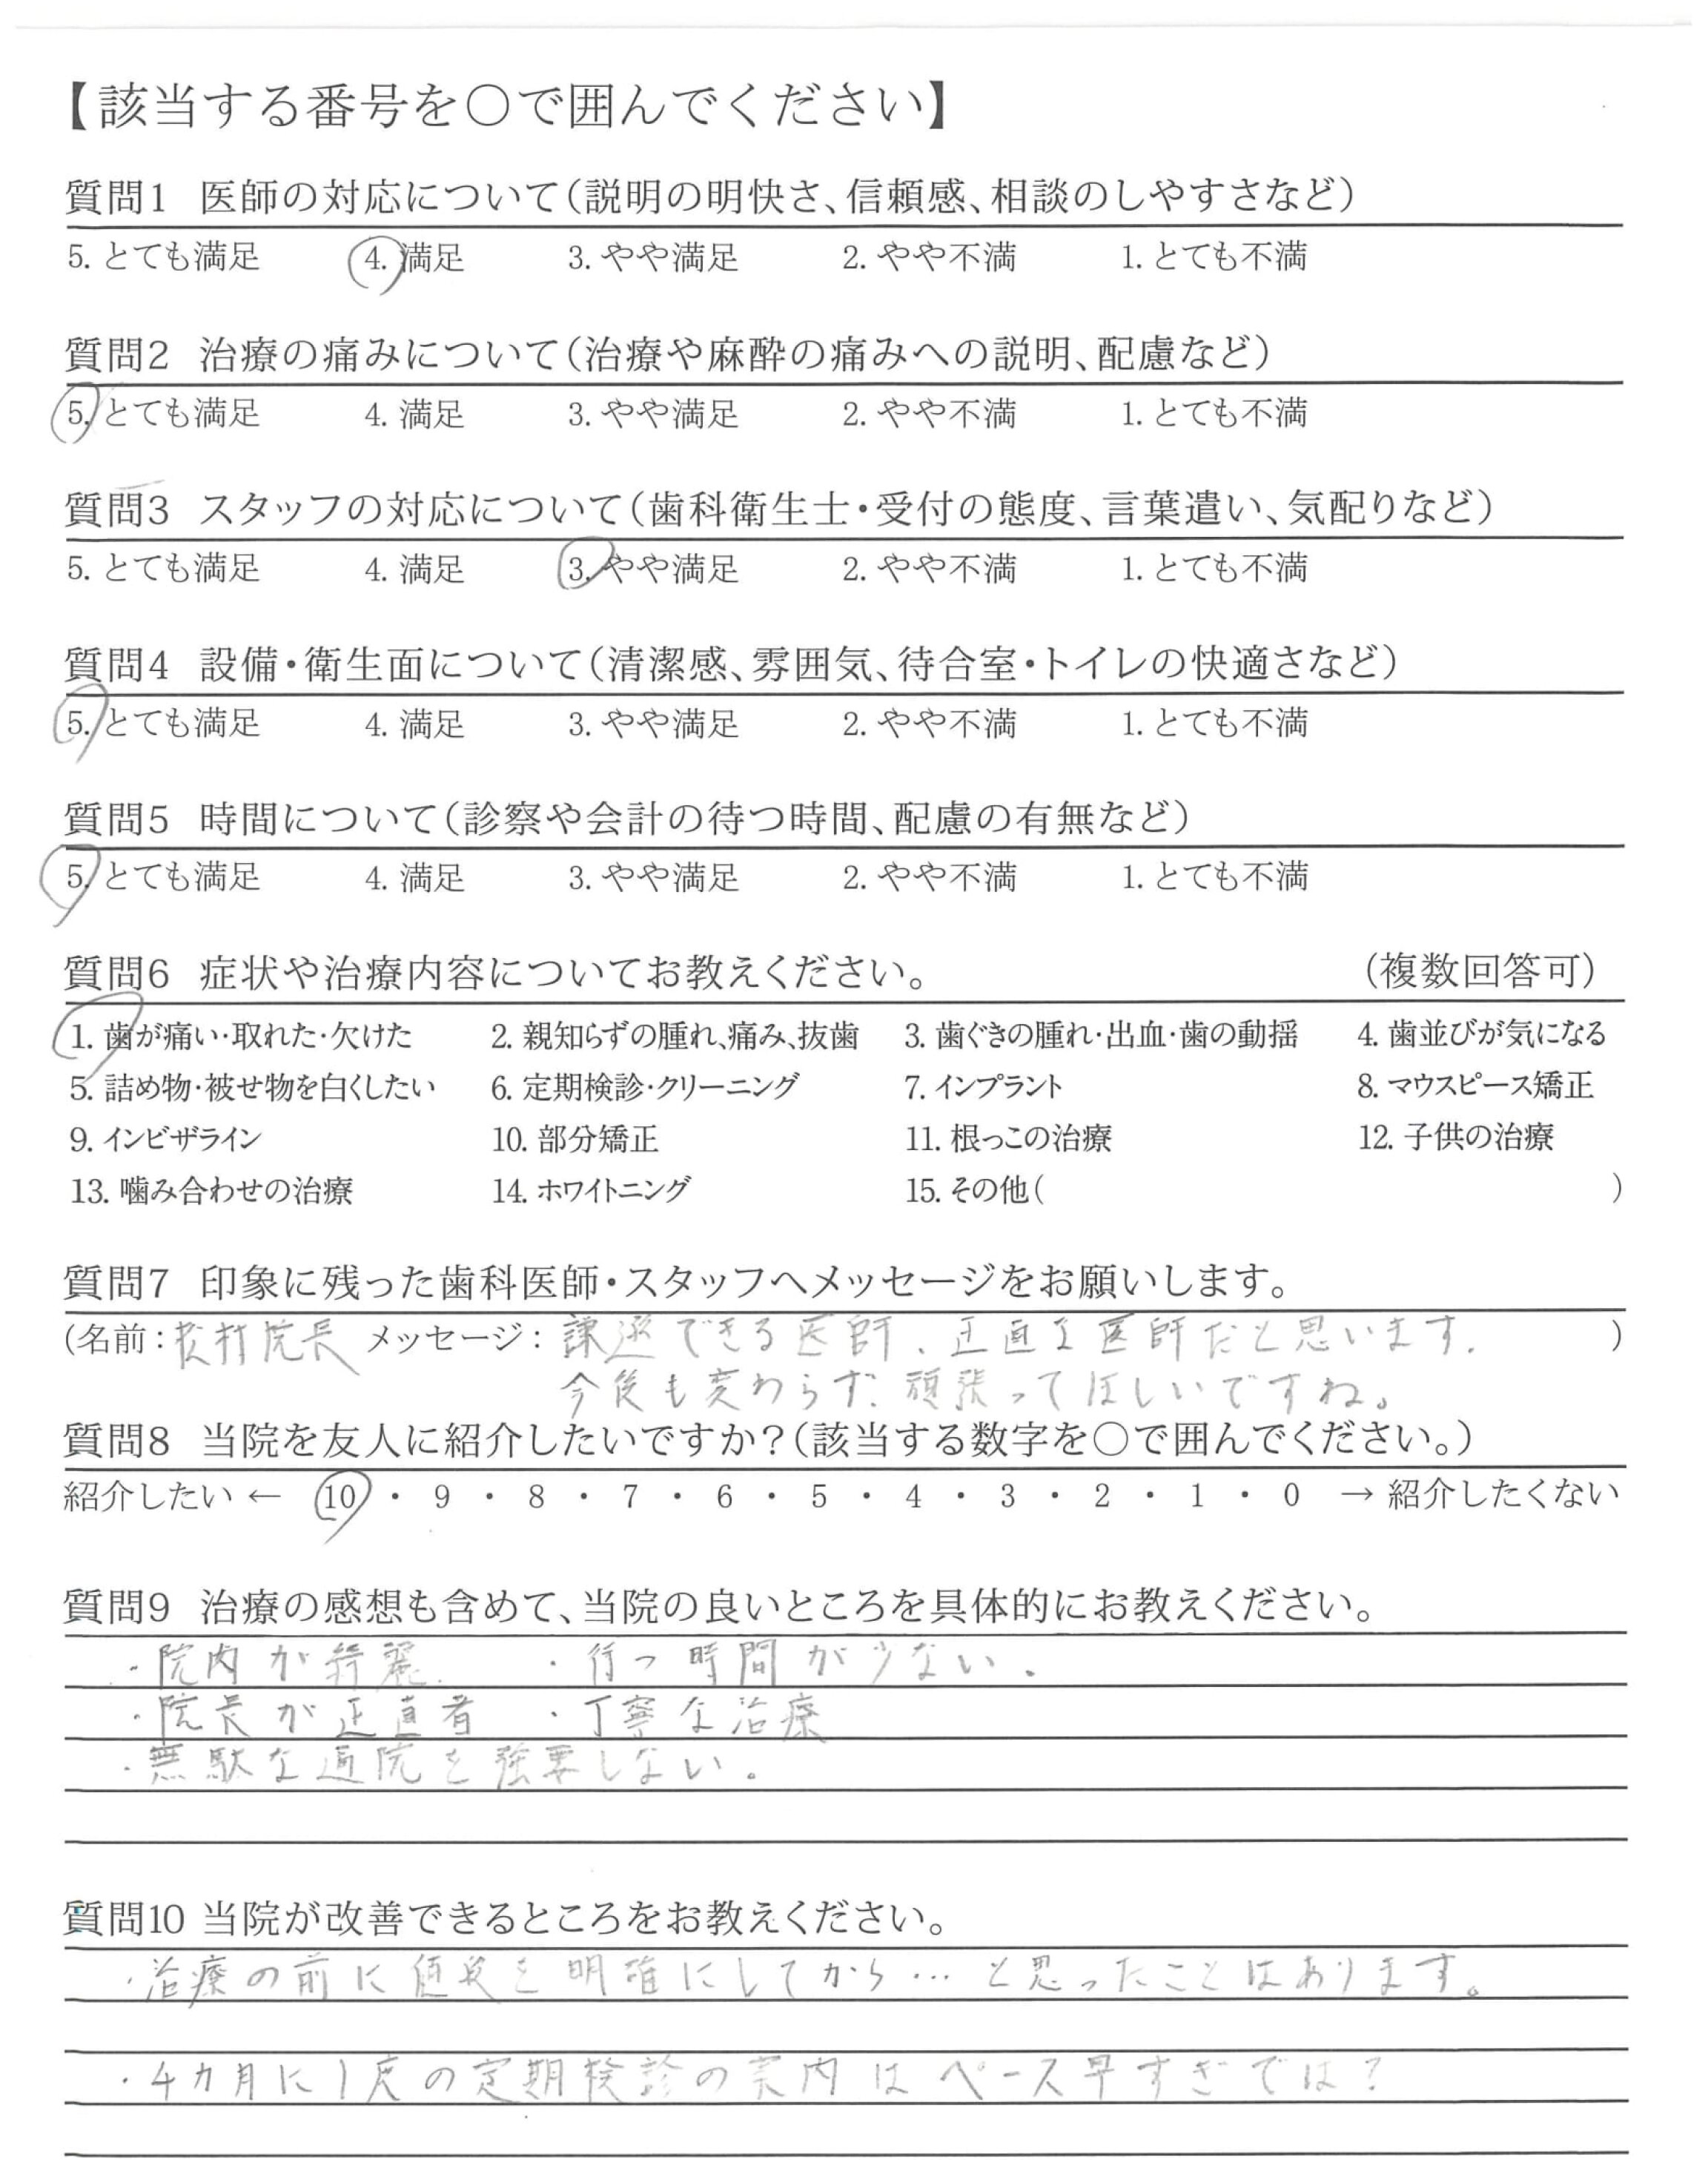 【該当する番号を〇で囲んでください】
質問1 医師の対応について（説明の明快さ、信頼感、相談のしやすさなど）
5. とても満足 4. 満足 3. やや満足 2. やや不満 1. とても不満
質問2 治療の痛みについて（治療や麻酔の痛みへの説明、配慮など）
5. とても満足 4. 満足 3. やや満足 2. やや不満 1. とても不満
質問3 スタッフの対応について（歯科衛生士・受付の態度、言葉遣い、気配りなど）
5. とても満足 4. 満足 3. やや満足 2. やや不満 1. とても不満
質問4 設備・衛生面について（清潔感、雰囲気、待合室・トイレの快適さなど）
5. とても満足 4. 満足 3. やや満足 2. やや不満 1. とても不満
質問5 時間について（診察や会計の待つ時間、配慮の有無など）
5. とても満足 4. 満足 3. やや満足 2. やや不満 1. とても不満
質問6 症状や治療内容についてお教えください。 （複数回答可）
1. 歯が痛い・取れた・欠けた 2. 親知らずの腫れ、痛み、抜歯 3. 歯ぐきの腫れ・出血・歯の動揺 4. 歯並びが気になる
5. 詰め物・被せ物を白くしたい 6. 定期検診・クリーニング 7. インプラント 8. マウスピース矯正
9. インビザライン 10. 部分矯正 11. 根っこの治療 12. 子供の治療
13. 噛み合わせの治療 14. ホワイトニング 15. その他（ ）
質問7 印象に残った歯科医師・スタッフへメッセージをお願いします。
（名前：院長 メッセージ：謙遜できる医師、正直な医師だと思います. ）
今後も変わらず、頑張ってほしいですね。
質問8 当院を友人に紹介したいですか？（該当する数字を〇で囲んでください。）
紹介したい ← 10 ・ 9 ・ 8 ・ 7 ・ 6 ・ 5 ・ 4 ・ 3 ・ 2 ・ 1 ・ 0 → 紹介したくない
質問9 治療の感想も含めて、当院の良いところを具体的にお教えください。
・院内が綺麗. ・待つ時間が少ない.
・院長が正直者 ・丁寧な治療
・無駄な通院を強要しない。
質問10 当院が改善できるところをお教えください。
・治療の前に値段を明確にしてから…と思ったことはあります。
・4カ月に1度の定期検診の案内はペース早すぎでは？